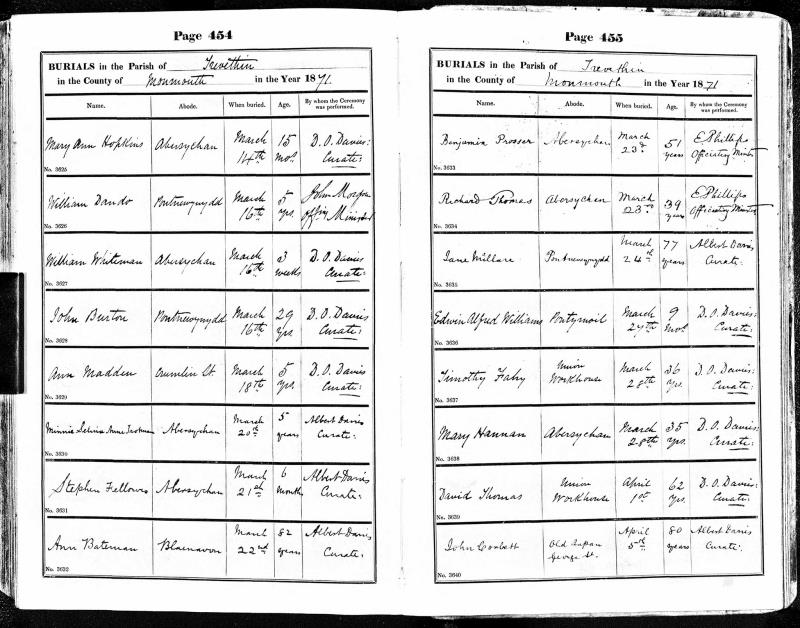 Page 454
BURIALS in the Parish of Trevethin
in the County of Monmouth in the Year 1871.
Name. Abode. When buried. Age. By whom the Ceremony was performed.
Mary Ann Hopkins Abersychan March 14th 15 mos. D. O. Davies: Curate:
No. 3625
William Dando Pontnewynydd March 16th 5 yrs. John Morgan offg Minister
No. 3626
William Whiteman Abersychan March 16th 3 weeks D. O. Davies Curate:
No. 3627
John Burton Pontnewynydd March 16th 29 yrs. D. O. Davies Curate:
No. 3628
Ann Madden Crumlin St. March 18th 5 yrs. D. O. Davies Curate:
No. 3629
Minnie Selina Anne Abersychan March 20th 5 years Albert Davis Curate:
No. 3630
Stephen Fellows Abersychan March 21st 6 months Albert Davis Curate:
No. 3631
Ann Bateman Blaenavon March 22nd 82 years Albert Davis Curate:
No. 3632
Page 455
BURIALS in the Parish of Trevethin
in the County of Monmouth in the Year 1871
Name. Abode. When buried. Age. By whom the Ceremony was performed.
Benjamin Prosser Abersychan March 23d 51 years E Phillips Officiating Minister
No. 3633
Richard Thomas Abersychan March 23rd 39 years E Phillips Officiating Minister
No. 3634
Jane March 24th 77 years Albert Davis Curate:
No. 3635
Edwin Alfred Williams Pontymoil March 27th 9 mos. D. O. Davies: Curate:
No. 3636
Timothy Fahy Union Workhouse March 28th 36 yrs. D. O. Davies: Curate:
No. 3637
Mary Hannan Abersychan March 28th 35 yrs. D. O. Davies: Curate:
No. 3638
David Thomas Union Workhouse April 1st 62 yrs. D. O. Davies: Curate:
No. 3639
John Corbett Old Japan George St. April 5th 80 years Albert Davis Curate:
No. 3640